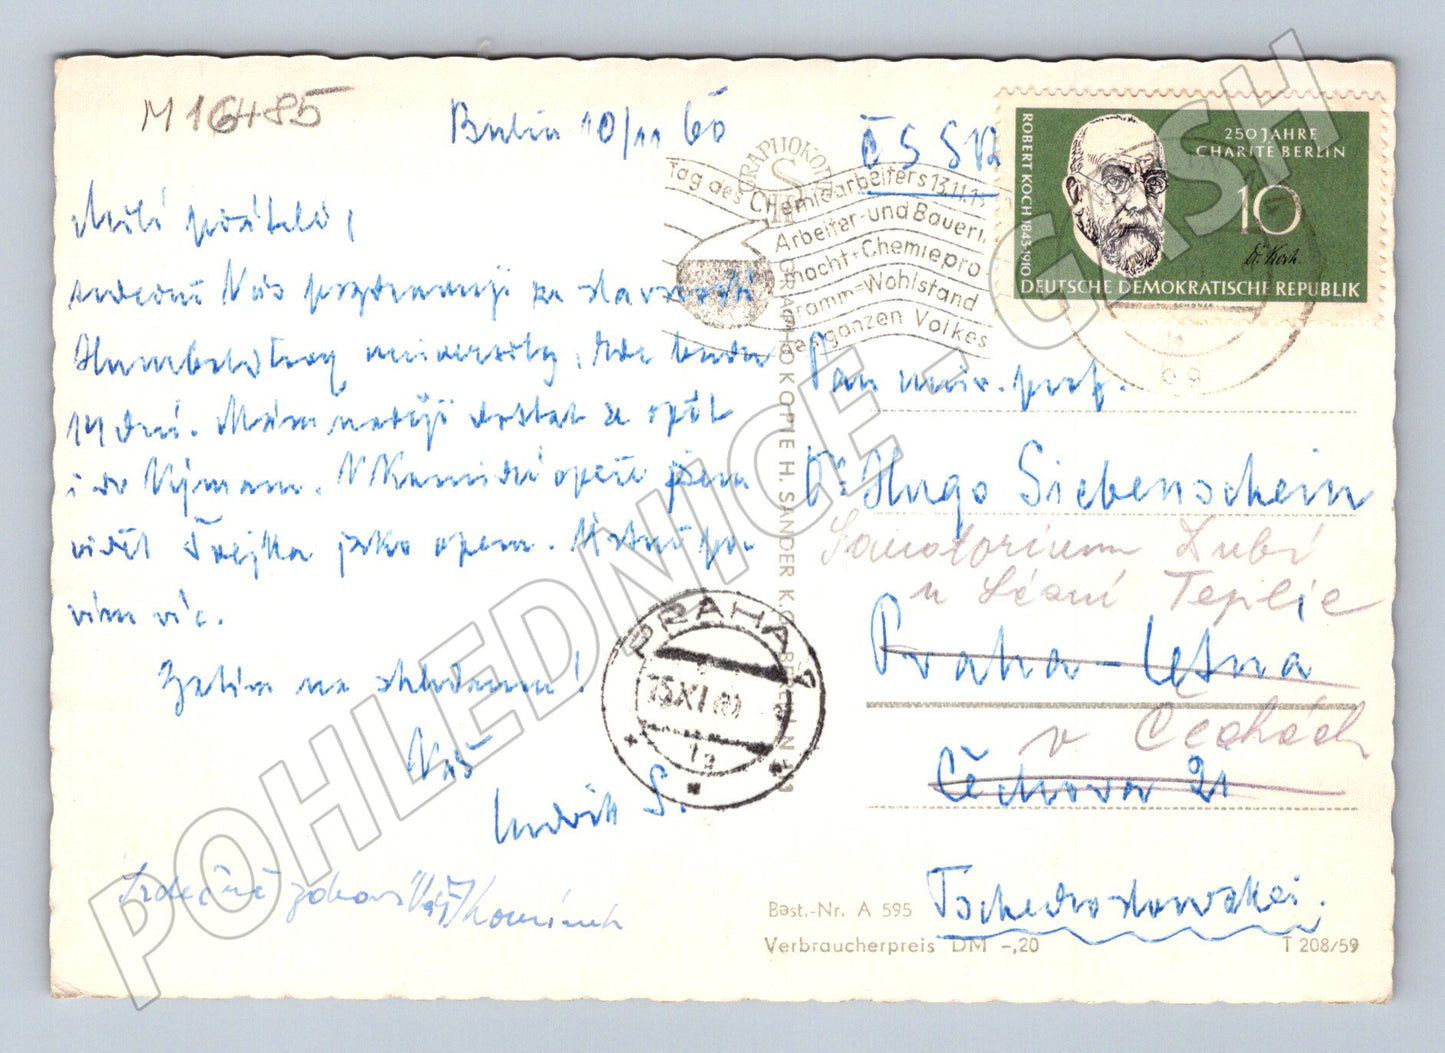 M 16485
Berlin 10/11 60
ČSSR
Milí přátelé,
srdečně Vás pozdravuji ze slavnosti
Humboldtovy university, kde budu
14 dní. Mám naději dostat se opět
i do Výmaru. V Komické opeře jsem
viděl Švejka jako operu. Ústně po-
vím víc.
Zatím na shledanou!
Váš
Ludvík S.
Srdečně zdraví Váš
Pan univ. prof.
Dr Hugo Siebenschein
Sanatorium Dubí
u Lázní Teplic
Praha-Letná
v Čechách
Čechova 21
Tschechoslowakei.
GRAPHOKOPIE H. SANDER KG. BERLIN
Tag des Chemiearbeiters 13.11.
Arbeiter-und Bauern-
macht+Chemiepro
gramm=Wohlstand
des ganzen Volkes
250 JAHRE
CHARITÉ BERLIN
10
ROBERT KOCH 1843-1910
Dr. Koch.
DEUTSCHE DEMOKRATISCHE REPUBLIK
PRAHA 7
15.XI.60
Best.-Nr. A 595
Verbraucherpreis DM -,20
T 208/59
POHLEDNICE - GASH